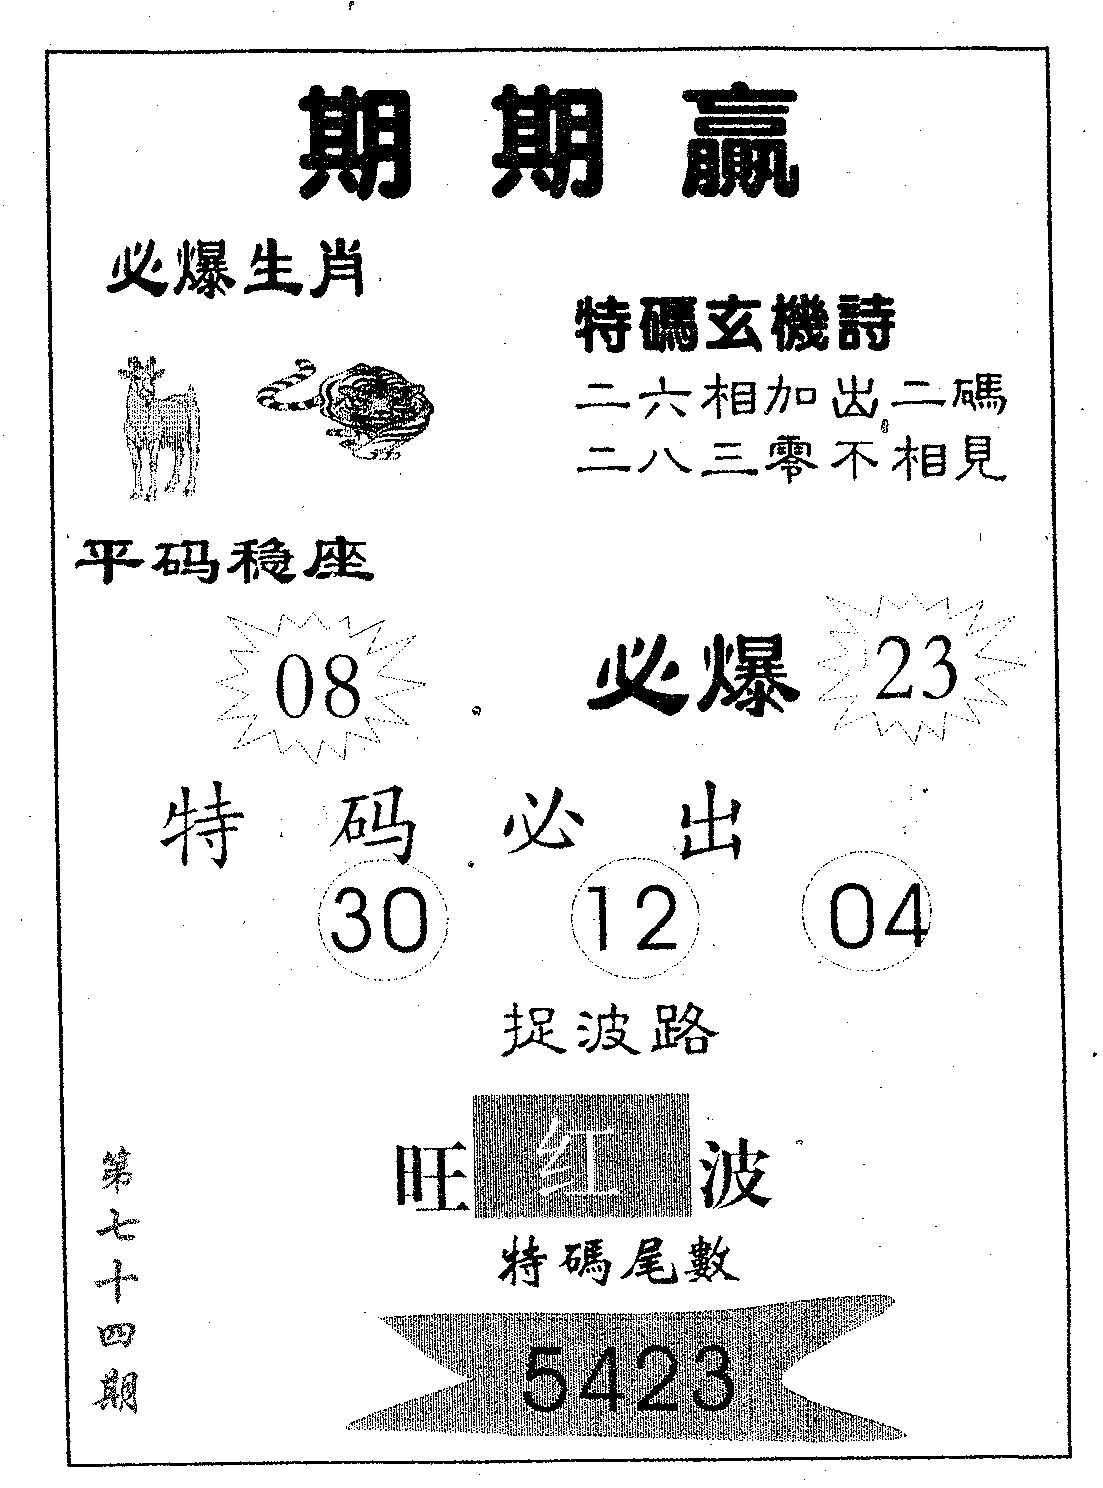 期期赢
必爆生肖
特碼玄機詩
二六相加出二碼
二八三零不相見
平码稳座
08
必爆 23
特码必出
30 12 04
捉波路
旺红波
特碼尾數
5423
第七十四期